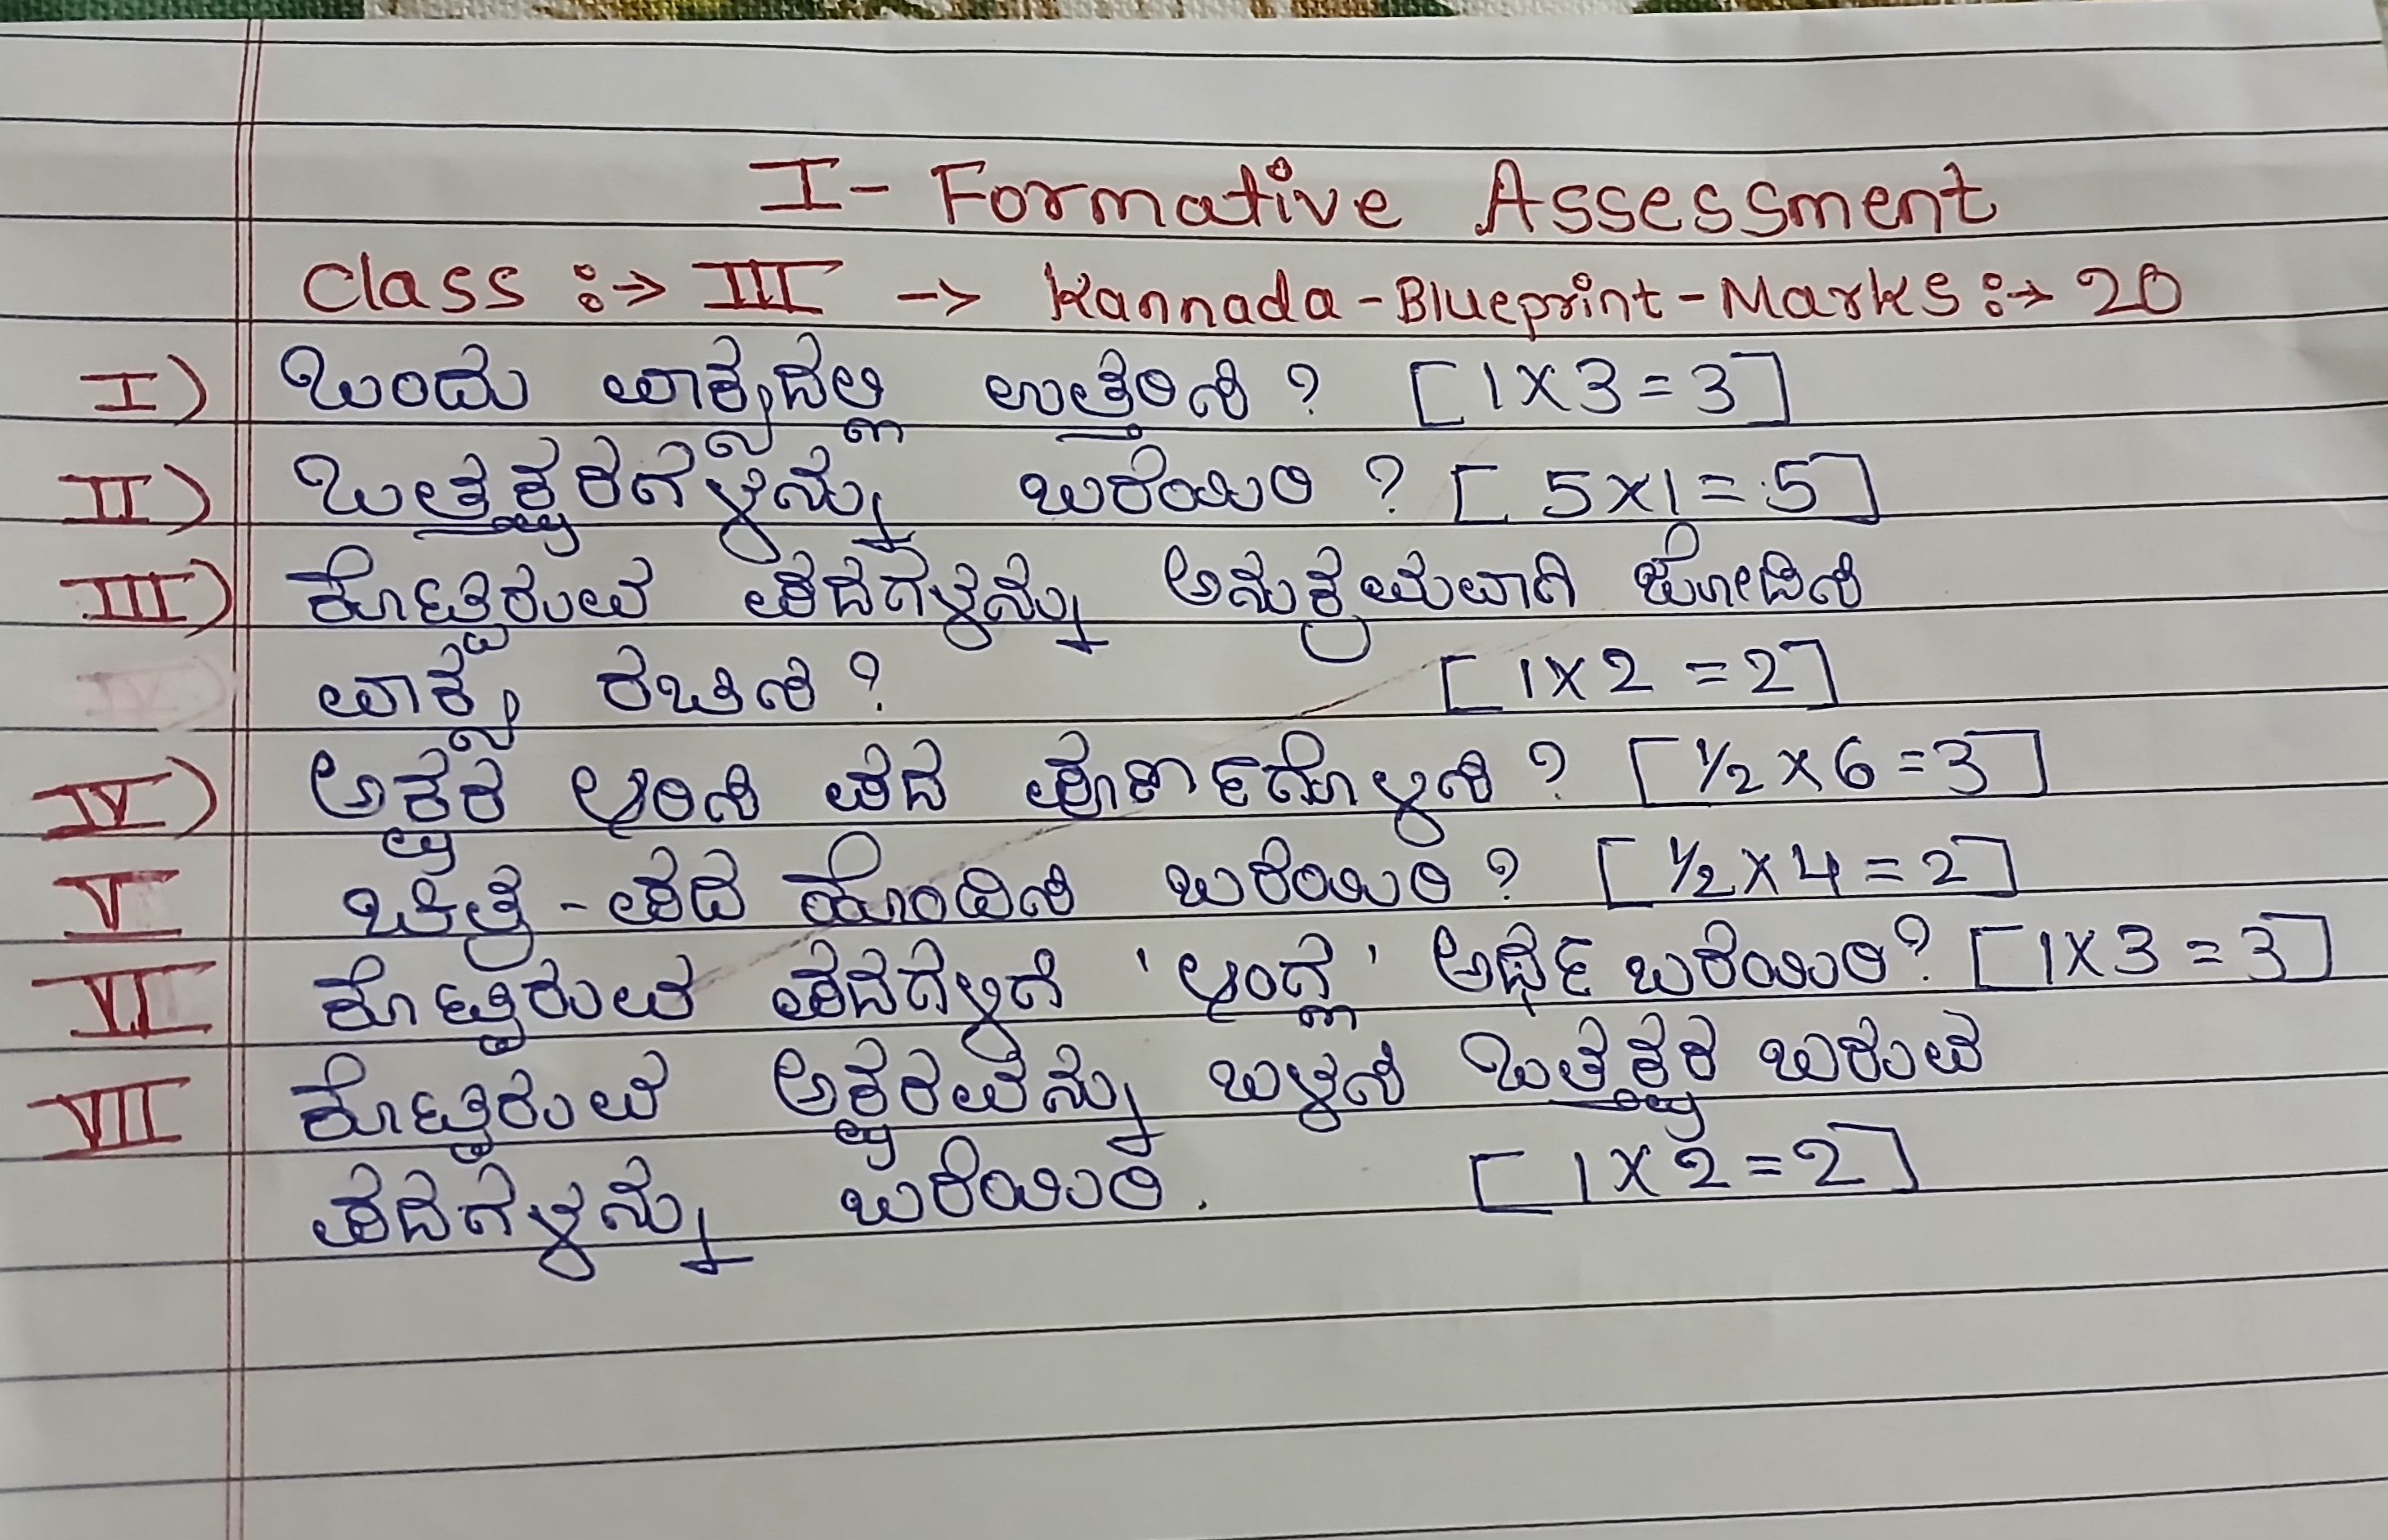 I- Formative Assessment
Class :-> III -> Kannada-Blueprint-Marks :-> 20
I) ಒಂದು ವಾಕ್ಯದಲ್ಲಿ ಉತ್ತರಿಸಿ ? [1X3=3]
II) ಒತ್ತಕ್ಷರಗಳನ್ನು ಬರೆಯಿರಿ ? [5X1=5]
III) ಕೊಟ್ಟಿರುವ ಪದಗಳನ್ನು ಅನುಕ್ರಮವಾಗಿ ಜೋಡಿಸಿ
ವಾಕ್ಯ ರಚಿಸಿ ? [1X2=2]
IV) ಅಕ್ಷರ ಆರಿಸಿ ಪದ ಪೂರ್ಣಗೊಳಿಸಿ ? [1/2X6=3]
V ಚಿತ್ರ-ಪದ ಹೊಂದಿಸಿ ಬರೆಯಿರಿ ? [1/2X4=2]
VI ಕೊಟ್ಟಿರುವ ಪದಗಳಿಗೆ 'ಆಂಗ್ಲ' ಅರ್ಥ ಬರೆಯಿರಿ? [1X3=3]
VII ಕೊಟ್ಟಿರುವ ಅಕ್ಷರವನ್ನು ಬಳಸಿ ಒತ್ತಕ್ಷರ ಬರುವ
ಪದಗಳನ್ನು ಬರೆಯಿರಿ. [1X2=2]